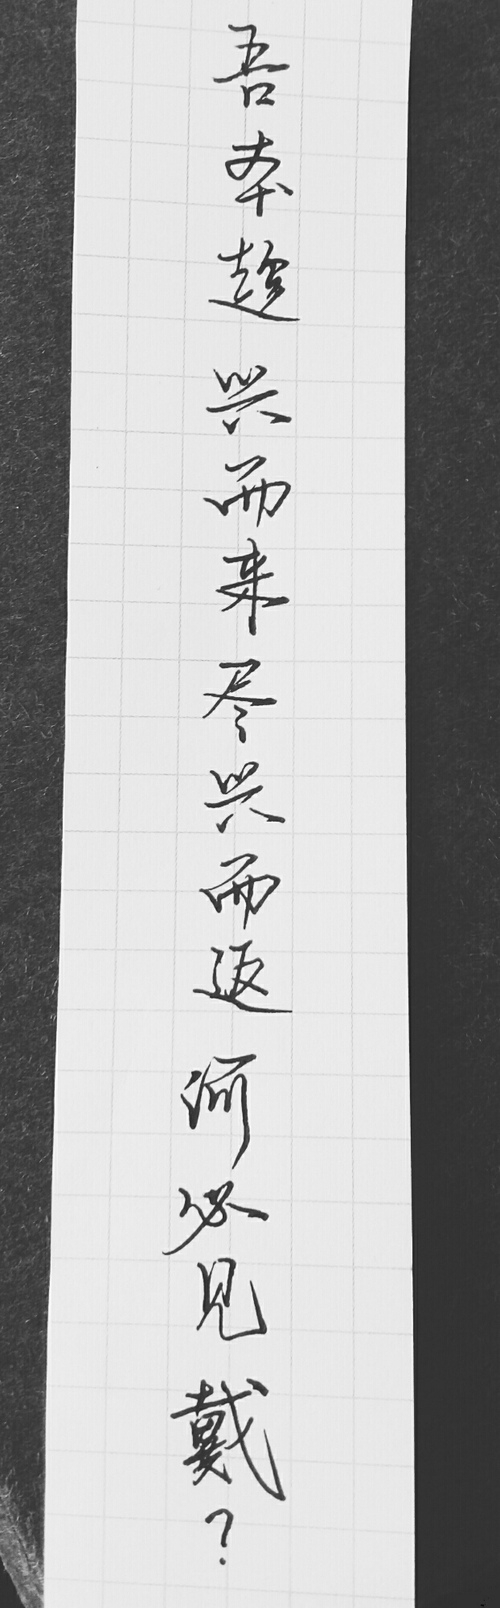 吾本趁兴而来尽兴而返何必见戴？